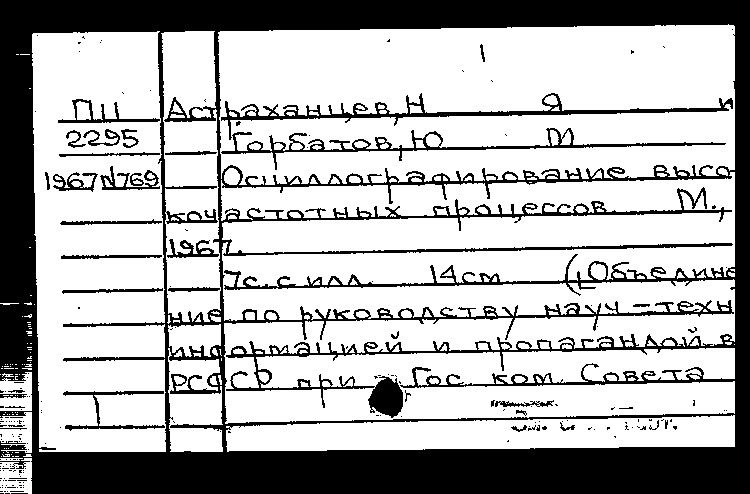 1
ПШ Астраханцев, Н Я и
2295 Горбатов, Ю М
1967N769 Осциллографирование высо
кочастотных процессов М.,
1967.
7с. с илл. 14см (Объедине
ние по руководству науч-техн
информацией и пропагандой в
РСФСР при Гос ком. Совета
1